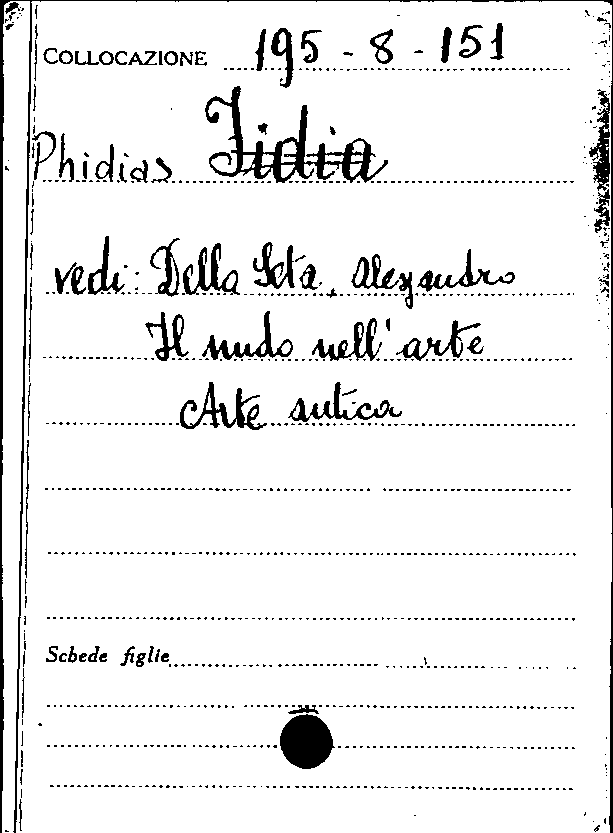 COLLOCAZIONE 195-8-151
Phidias Fidia
vedi: Della Seta, Alessandro
Il nudo nell'arte
Arte antica
Schede figlie